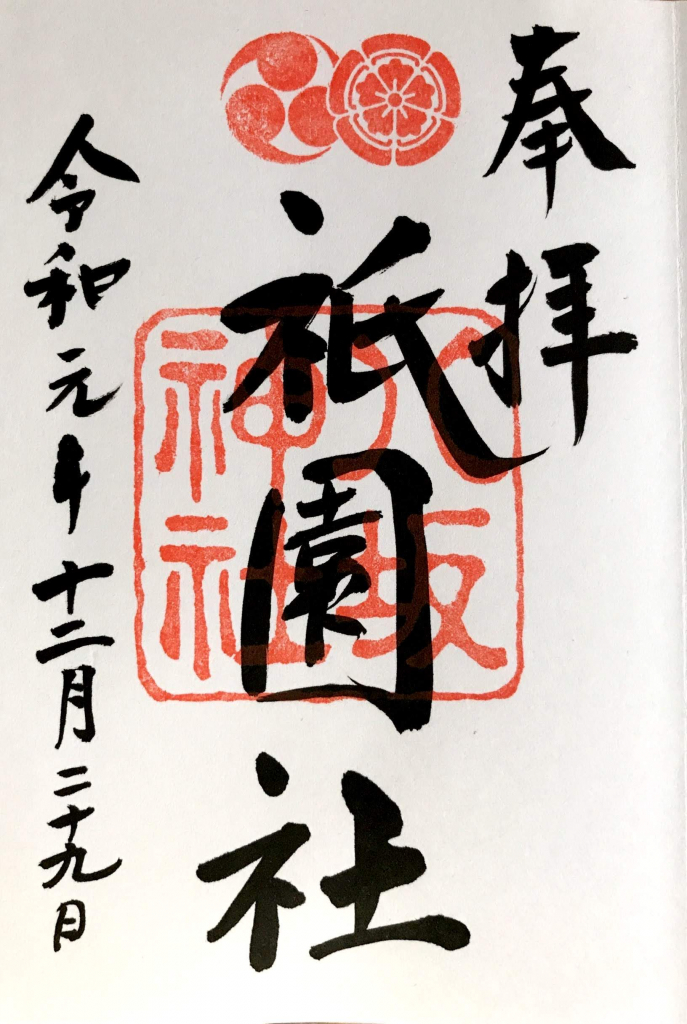 奉拝
祇園社
八坂
神社
令和元年十二月二十九日